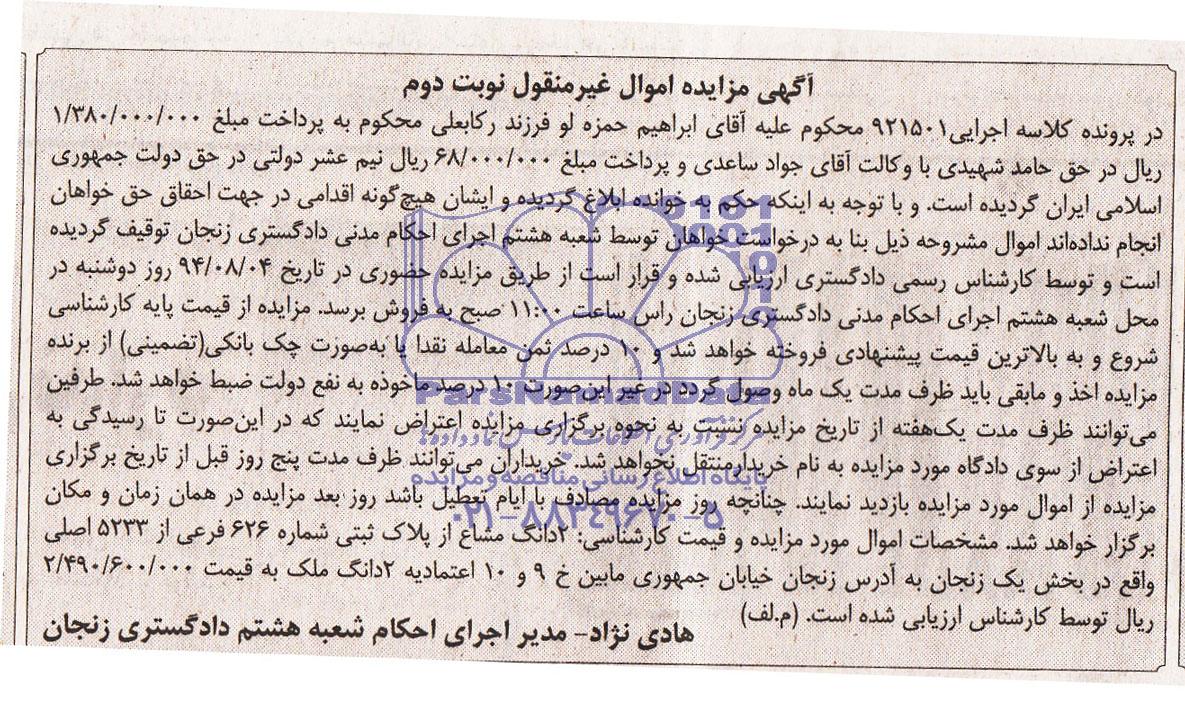 آگهی مزایده اموال غیرمنقول نوبت دوم
در پرونده کلاسه اجرایی۹۲۱۵۰۱ محکوم علیه آقای ابراهیم حمزه لو فرزند رکابعلی محکوم به پرداخت مبلغ ۱/۳۸۰/۰۰۰/۰۰۰
ریال در حق حامد شهیدی با وکالت آقای جواد ساعدی و پرداخت مبلغ ۶۸/۰۰۰/۰۰۰ ریال نیم عشر دولتی در حق دولت جمهوری
اسلامی ایران گردیده است. و با توجه به اینکه حکم به خوانده ابلاغ گردیده و ایشان هیچ‌گونه اقدامی در جهت احقاق حق خواهان
انجام نداده‌اند اموال مشروحه ذیل بنا به درخواست خواهان توسط شعبه هشتم اجرای احکام مدنی دادگستری زنجان توقیف گردیده
است و توسط کارشناس رسمی دادگستری ارزیابی شده و قرار است از طریق مزایده حضوری در تاریخ ۹۴/۰۸/۰۴ روز دوشنبه در
محل شعبه هشتم اجرای احکام مدنی دادگستری زنجان راس ساعت ۱۱:۰۰ صبح به فروش برسد. مزایده از قیمت پایه کارشناسی
شروع و به بالاترین قیمت پیشنهادی فروخته خواهد شد و ۱۰ درصد ثمن معامله نقدا یا به‌صورت چک بانکی(تضمینی) از برنده
مزایده اخذ و مابقی باید ظرف مدت یک ماه وصول گردد در غیر این‌صورت ۱۰ درصد ماخوذه به نفع دولت ضبط خواهد شد. طرفین
می‌توانند ظرف مدت یک‌هفته از تاریخ مزایده نسبت به نحوه برگزاری مزایده اعتراض نمایند که در این‌صورت تا رسیدگی به
اعتراض از سوی دادگاه مورد مزایده به نام خریدارمنتقل نخواهد شد. خریداران می‌توانند ظرف مدت پنج روز قبل از تاریخ برگزاری
مزایده از اموال مورد مزایده بازدید نمایند. چنانچه روز مزایده مصادف با ایام تعطیل باشد روز بعد مزایده در همان زمان و مکان
برگزار خواهد شد. مشخصات اموال مورد مزایده و قیمت کارشناسی: ۲دانگ مشاع از پلاک ثبتی شماره ۶۲۶ فرعی از ۵۲۳۳ اصلی
واقع در بخش یک زنجان به آدرس زنجان خیابان جمهوری مابین خ ۹ و ۱۰ اعتمادیه ۲دانگ ملک به قیمت ۲/۴۹۰/۶۰۰/۰۰۰
ریال توسط کارشناس ارزیابی شده است. (م.لف)
هادی نژاد- مدیر اجرای احکام شعبه هشتم دادگستری زنجان
ParsNamadData
مرکز فرآوری اطلاعات پارس نماد داده‌ها
پایگاه اطلاع رسانی مناقصه و مزایده
۰۲۱-۸۸۳۴۹۶۷۰-۵